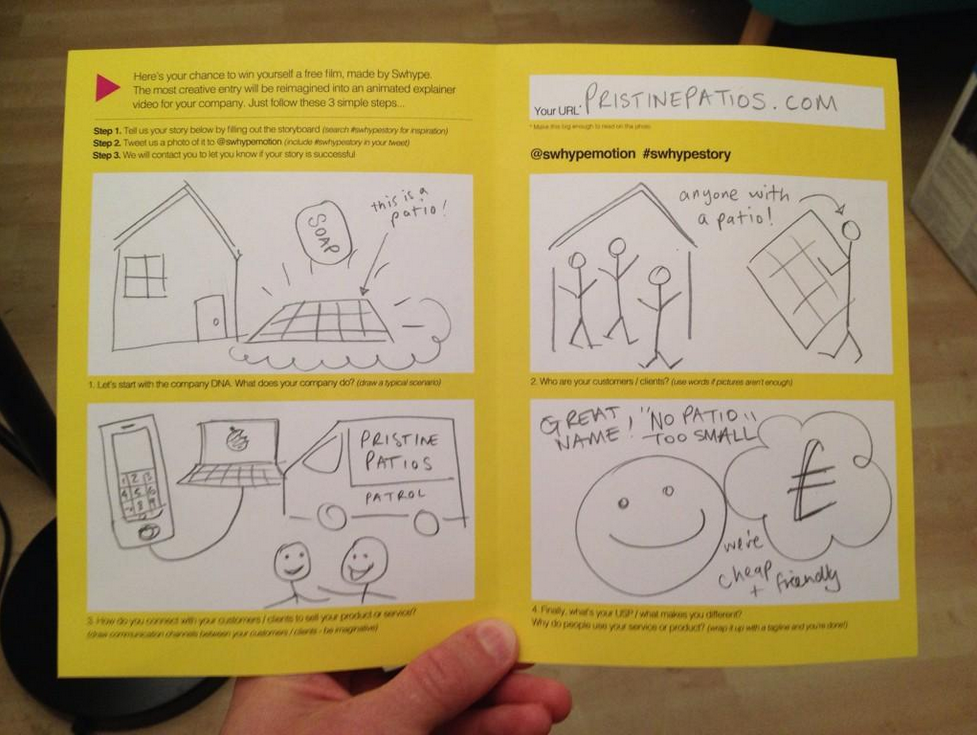 Here's your chance to win yourself a free film, made by Swhype.
The most creative entry will be reimagined into an animated explainer
video for your company. Just follow these 3 simple steps...
Step 1. Tell us your story below by filling out the storyboard (search #swhypestory for inspiration)
Step 2. Tweet us a photo of it to @swhypemotion (include #swhypestory in your tweet)
Step 3. We will contact you to let you know if your story is successful
SOAP
this is a
patio!
1. Let's start with the company DNA. What does your company do? (draw a typical scenario)
PRISTINE
PATIOS
PATROL
3. How do you connect with your customers / clients to sell your product or service?
(draw communication channels between your customers / clients - be imaginative)
Your URL* PRISTINEPATIOS.COM
* Make this big enough to read on the photo
@swhypemotion #swhypestory
anyone with
a patio!
2. Who are your customers / clients? (use words if pictures aren't enough)
GREAT
NAME!
"NO PATIO
TOO SMALL"
£
we're
cheap
+ friendly
4. Finally, what's your USP / what makes you different?
Why do people use your service or product? (wrap it up with a tagline and you're done!)